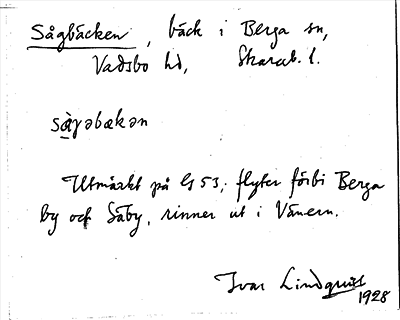 Sågbäcken, bäck i Berga sn,
Vadsbo hd, Skarab. l.
sàgəbækən
Utmärkt på G 53; flyter förbi Berga
by och Säby, rinner ut i Vänern.
Ivar Lindquist
1928